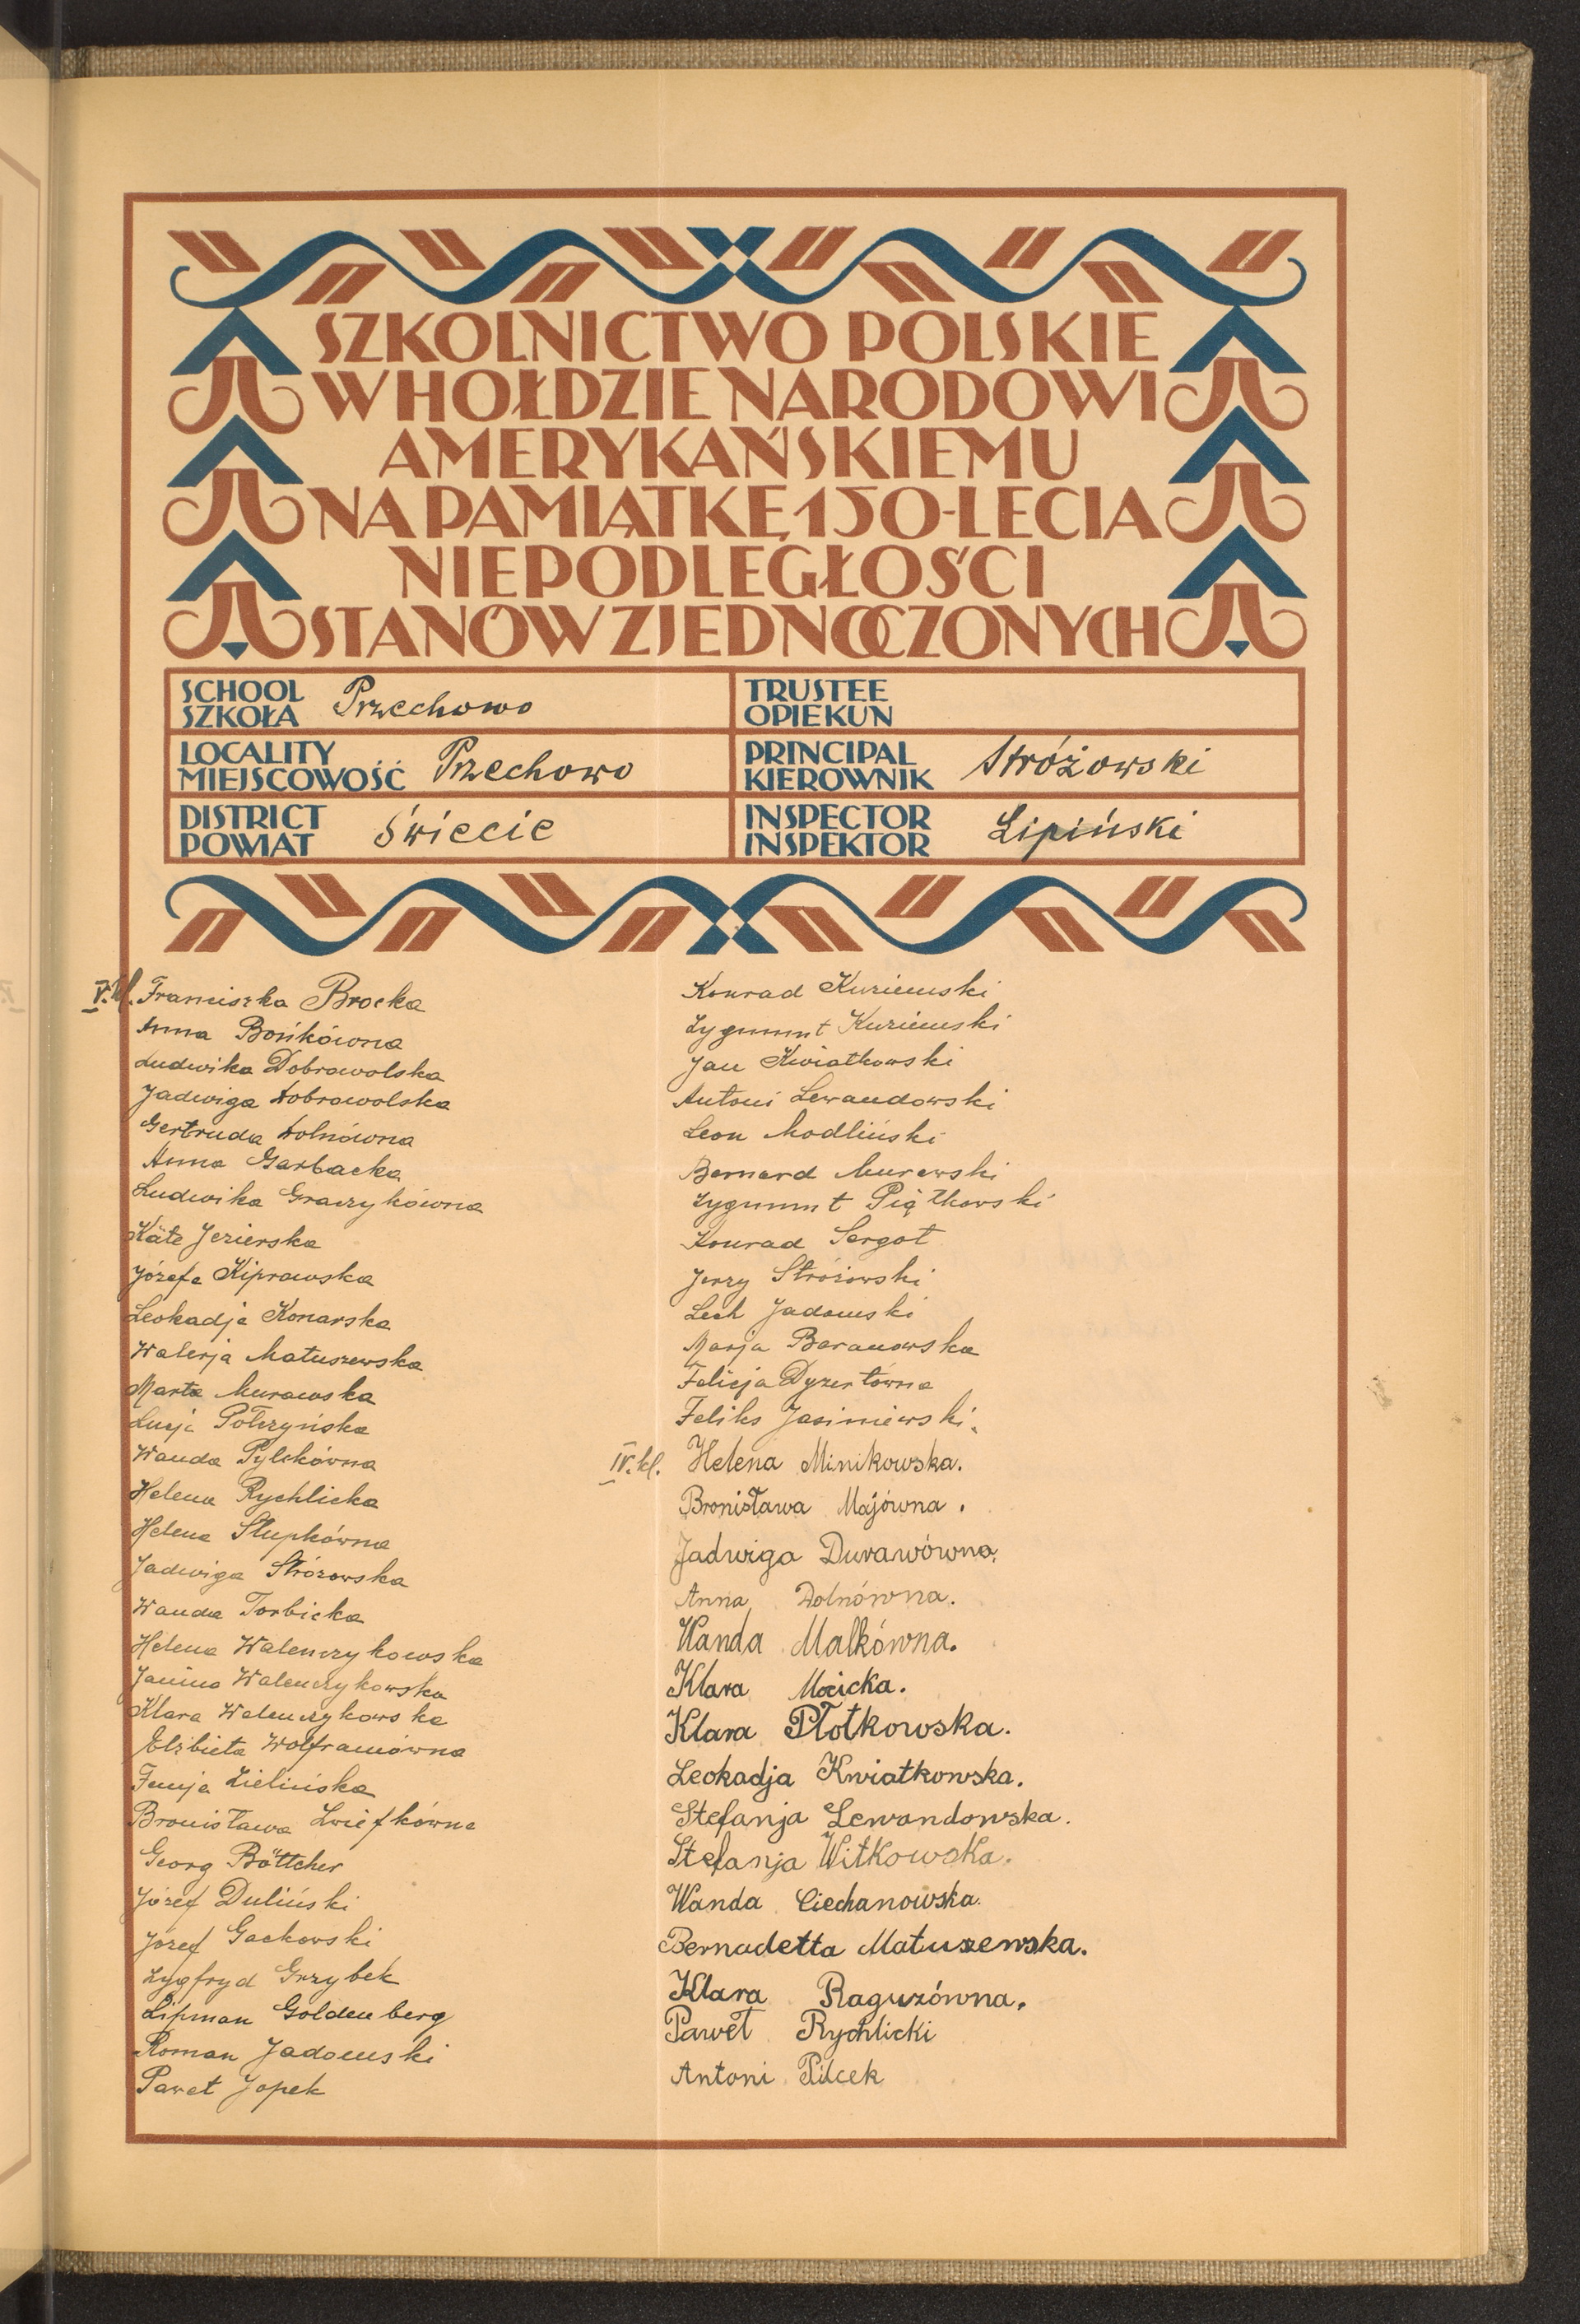 SZKOLNICTWO POLSKIE
W HOŁDZIE NARODOWI
AMERYKAŃSKIEMU
NA PAMIĄTKĘ 150-LECIA
NIEPODLEGŁOŚCI
STANÓW ZJEDNOCZONYCH
SCHOOL
SZKOŁA Przechowo
TRUSTEE
OPIEKUN
LOCALITY
MIEJSCOWOŚĆ Przechowo
PRINCIPAL
KIEROWNIK Stróżowski
DISTRICT
POWIAT Świecie
INSPECTOR
INSPEKTOR Lipiński
V. kl. Franciszka Brocka
Anna Bońkówna
Ludwika Dobrowolska
Jadwiga Dobrowolska
Gertruda Dolnówna
Anna Garbacka
Ludwika Graczykówna
Käte Jezierska
Józefa Kiprowska
Leokadja Konarska
Walerja Matuszewska
Marta Murawska
Łucja Połczyńska
Wanda Pylckówna
Helena Rychlicka
Helena Słupkówna
Jadwiga Stróżowska
Wanda Torbicka
Helena Walenczykowska
Janina Walenczykowska
Klara Walenczykowska
Elżbieta Wolframówna
Zielińska
Bronisława
Georg Böttcher
Józef Duliński
Józef Gackowski
Zygfryd Grzybek
Lipman Goldenberg
Roman Jadowski
Paweł Jopek
Konrad Kuziemski
Zygmunt Kuziemski
Jan Kwiatkowski
Antoni Lewandowski
Leon Modliński
Bernard Murawski
Zygmunt Piątkowski
Konrad Sergot
Jerzy Stróżowski
Lech Jadowski
Marja Baranowska
Felicja Dyzertówna
Feliks Jasiniewski.
IV. kl. Helena Minikowska.
Bronisława Majówna.
Jadwiga Durawówna.
Anna Dolnówna.
Wanda Malkówna.
Klara Mocicka.
Klara Płotkowska.
Leokadja Kwiatkowska.
Stefanja Lewandowska.
Stefanja Witkowska.
Wanda Ciechanowska.
Bernadetta Matuszewska.
Klara Raguzówna.
Paweł Rychlicki
Antoni Pilcek